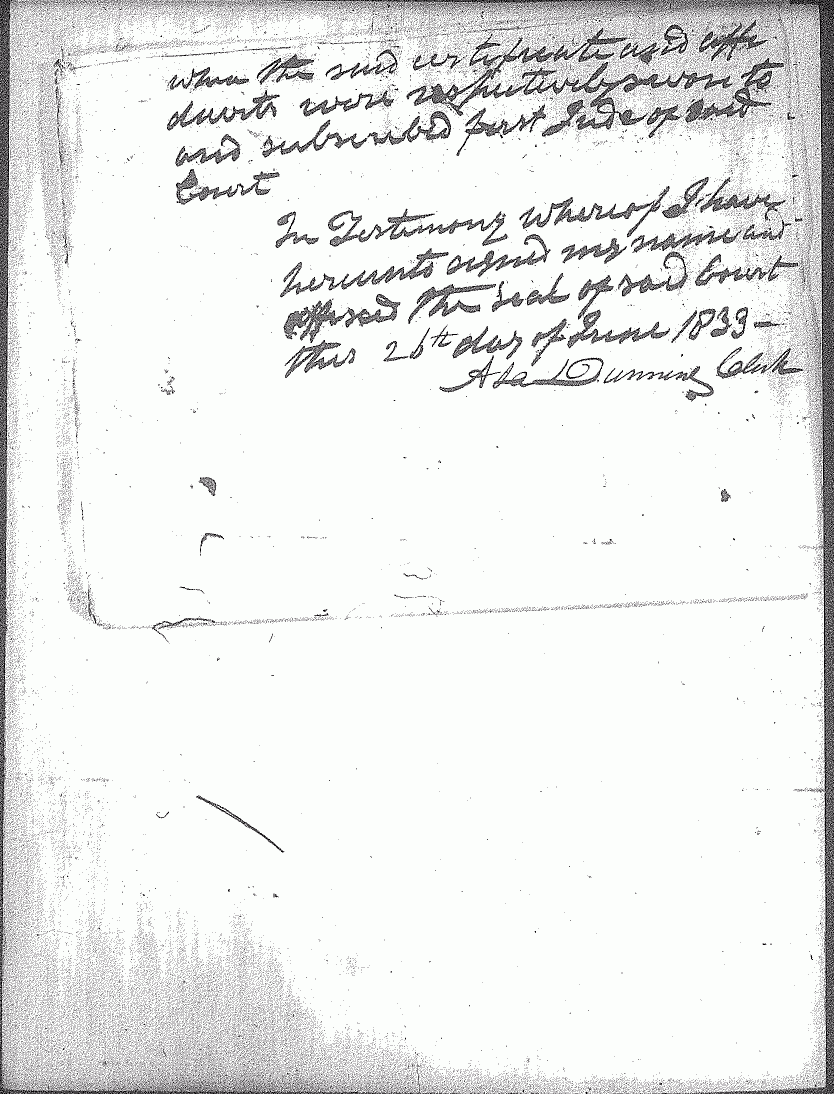 when the said certificate and affi
davits were respectively sworn to
and subscribed first Jude of said
Court
In Testimony whereof I have
hereunto signed my name and
affixed the seal of said Court
this 26th day of June 1833 -
Asa Dunning Clerk